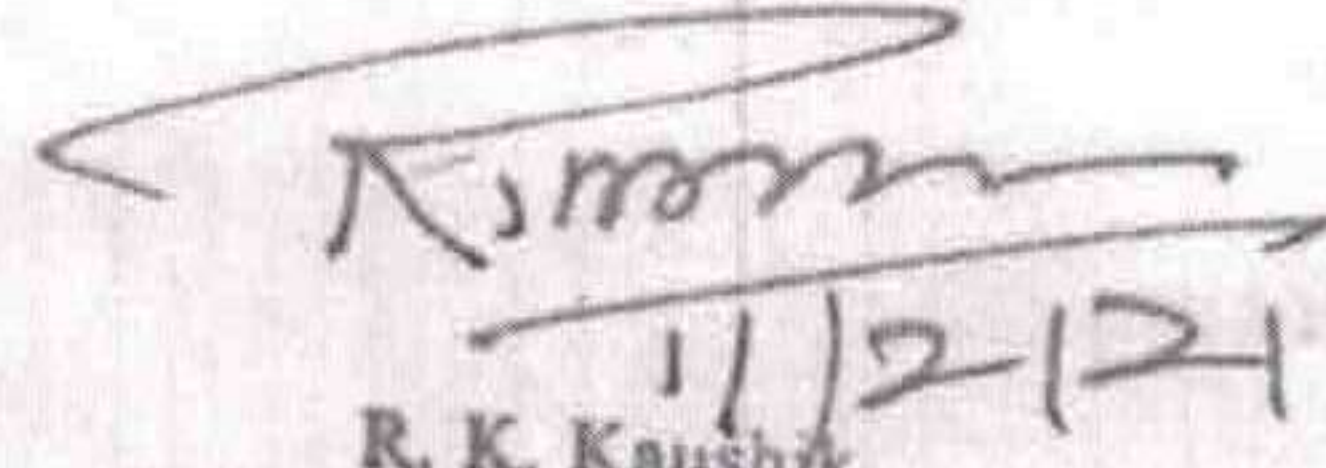 11/2/21
R. K. Kaushik